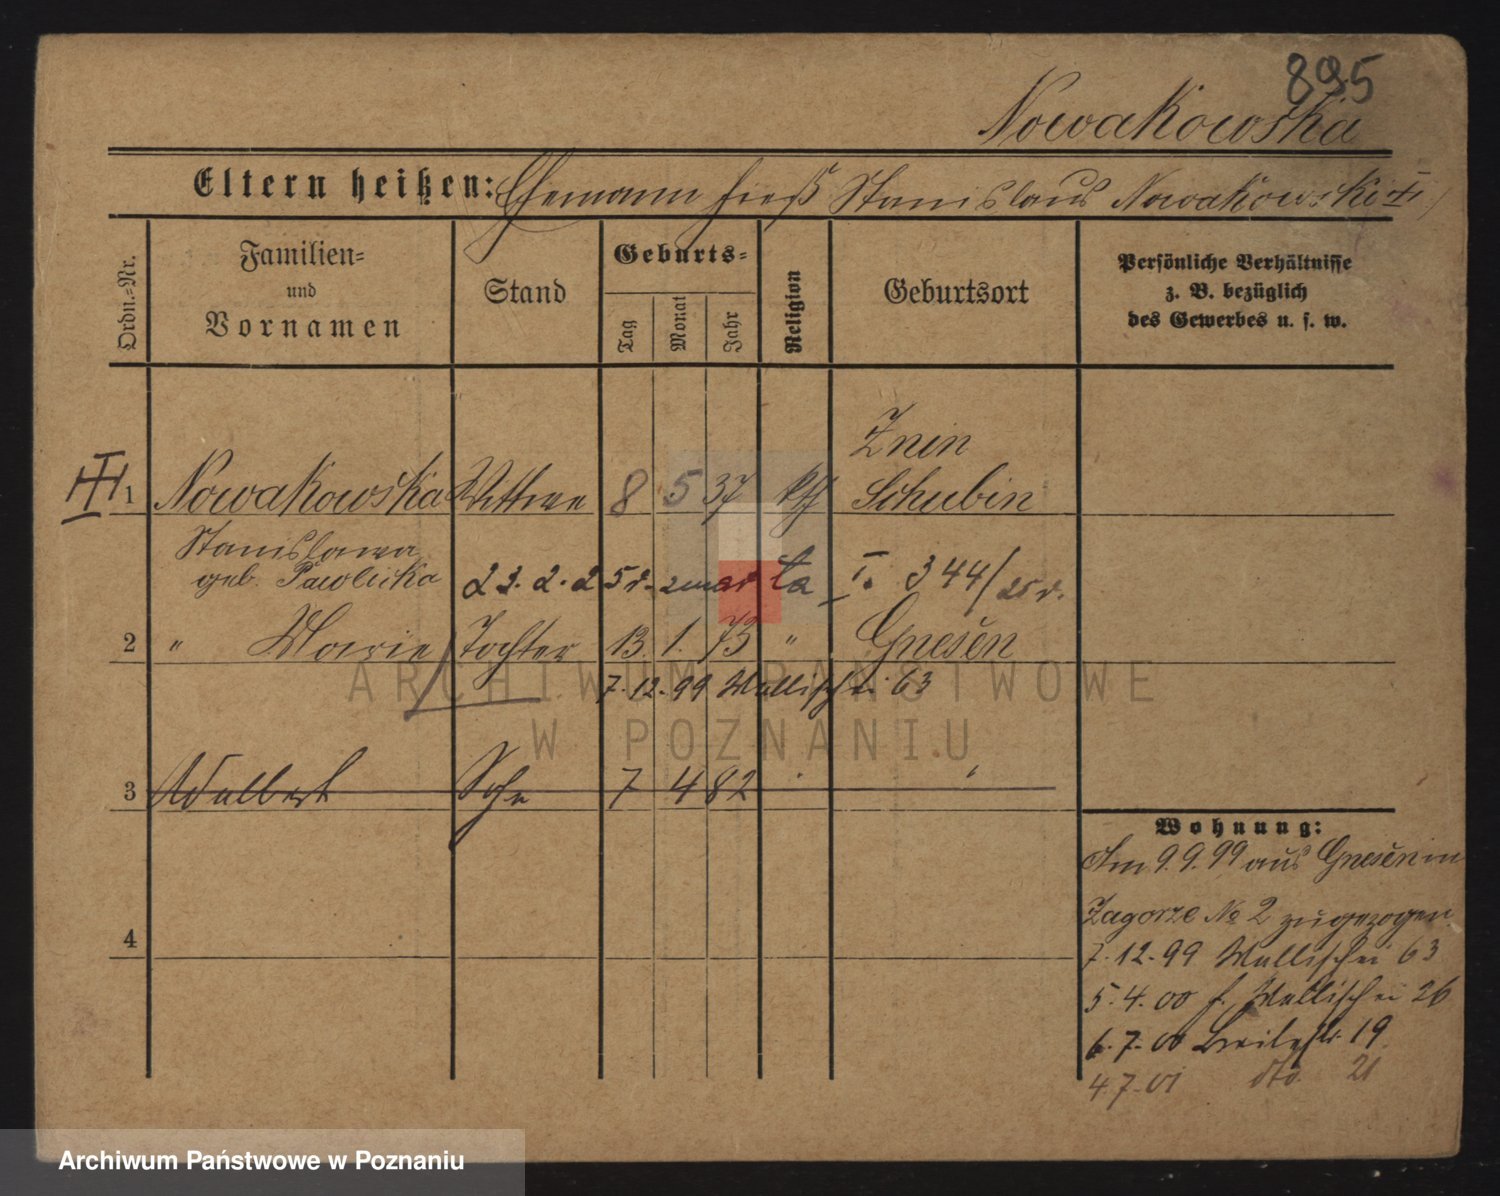 895
Nowakowska
Eltern heißen: Ehemann hieß Stanislaus Nowakowski
Ordn.-Nr.
Familien-
und
Vornamen
Stand
Geburts-
Tag
Monat
Jahr
Religion
Geburtsort
Persönliche Verhältnisse
z. B. bezüglich
des Gewerbes u. s. w.
Znin
1 Nowakowska Wittwe 8 5 37 kth Schubin
Stanisława
geb. Pawlicka 23.2.25 r. zmarła I. 344/25 r.
2 " Marie Tochter 13. 1. 73 " Gnesen
7.12.99 Wallischei 63
3 Adalbert Sohn 7 4 82
4
Wohnung:
Am 9.9.99 aus Gnesen in
Zagorze No 2 zugezogen
7.12.99 Wallischei 63
5.4.00 f. Wallischei 26
6.7.00 Breitestr. 19
4.7.01 dto. 21
ARCHIWUM PAŃSTWOWE
W POZNANIU
Archiwum Państwowe w Poznaniu